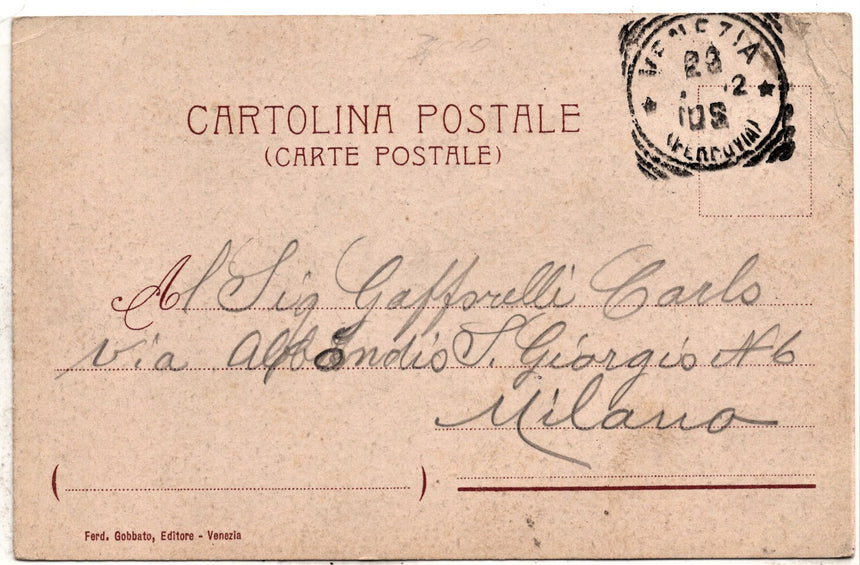 CARTOLINA POSTALE
(CARTE POSTALE)
VENEZIA
23
12
(FERROVIA)
Al Sig Gafforelli Carlo
via Abbondio S. Giorgio N 6
Milano
( )
Ferd. Gobbato, Editore - Venezia